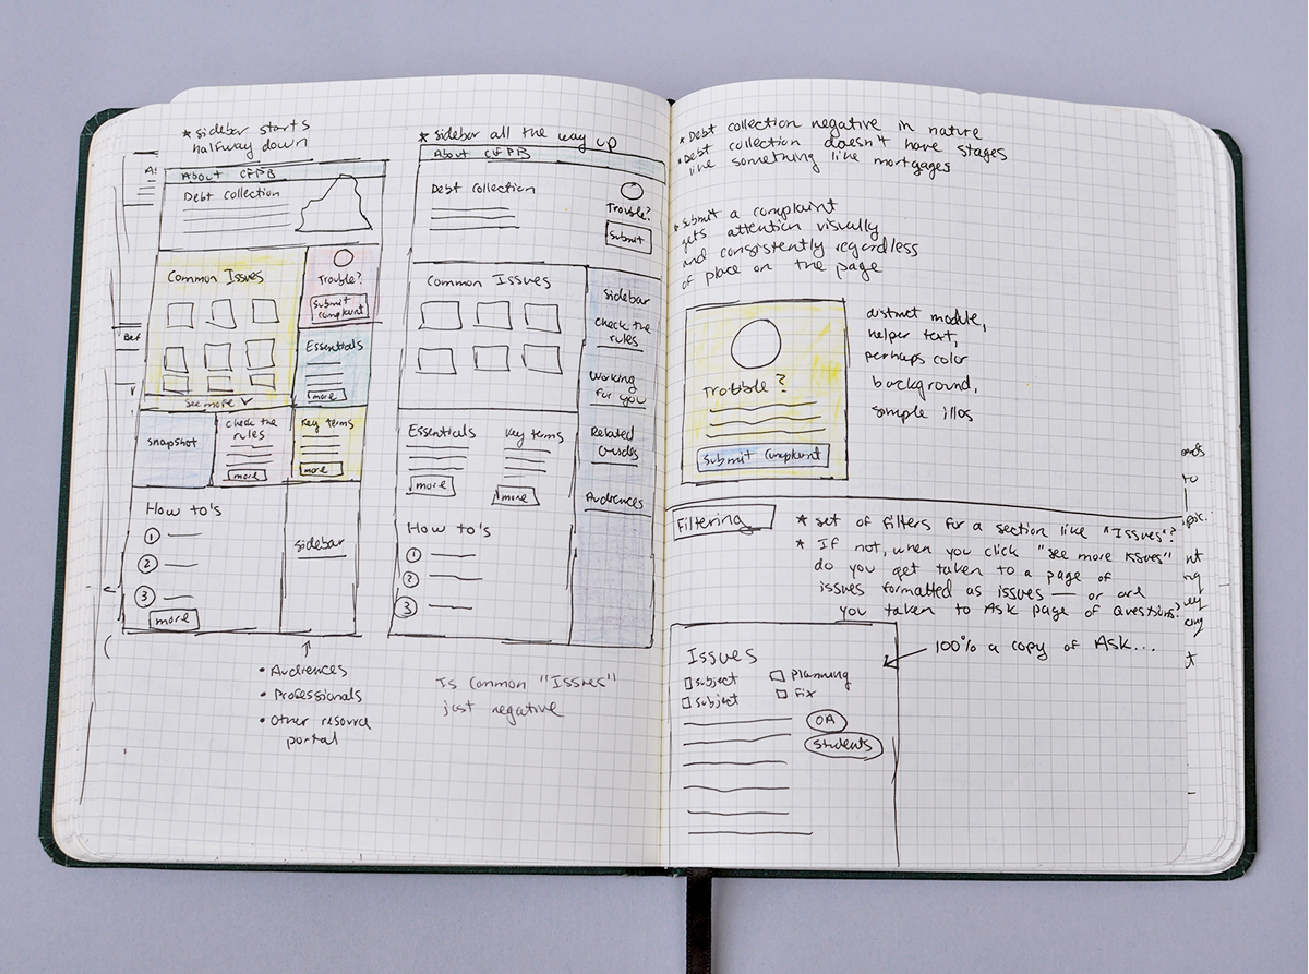 * sidebar starts
halfway down
About CFPB
Debt collection
Common Issues
See more
Trouble?
Submit
complaint
Essentials
more
snapshot
check the
rules
more
Key terms
more
How to's
1
2
3
more
sidebar
• Audiences
• Professionals
• Other resource
portal
* sidebar all the way up
About CFPB
Debt collection
Trouble?
Submit
Common Issues
Sidebar
check the
rules
Working
for you
Related
Guides
Audiences
Essentials
more
Key terms
more
How to's
1
2
3
Is Common "Issues"
just negative
* Debt collection negative in nature
* Debt collection doesn't have stages
like something like mortgages
* Submit a complaint
gets attention visually
and consistently regardless
of place on the page
Trouble?
Submit Complaint
distinct module,
helper text,
perhaps color
background,
simple illos
Filtering
* set of filters for a section like "Issues"?
* If not, when you click "see more issues"
do you get taken to a page of
issues formatted as issues — or are
you taken to Ask page of questions?
100% a copy of Ask...
Issues
subject
subject
planning
fix
OA
students